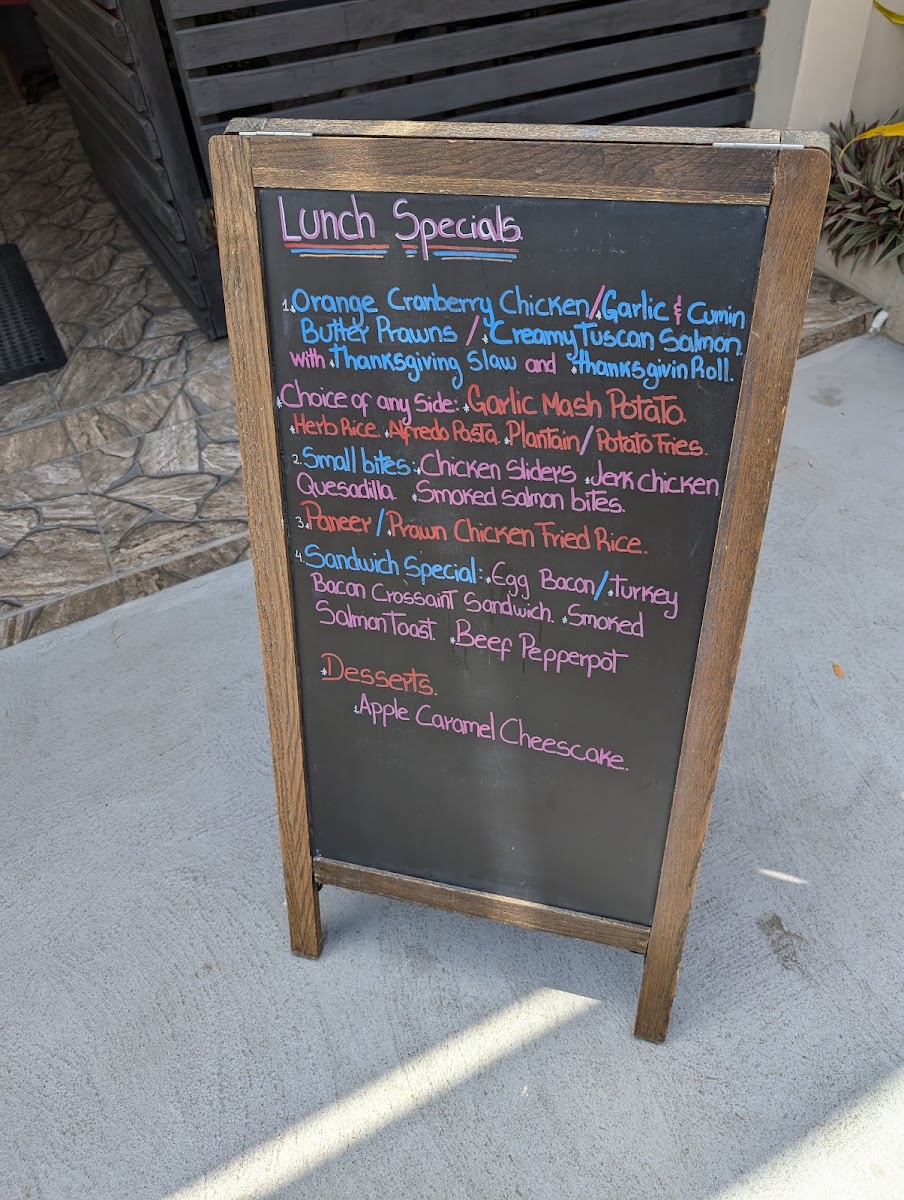 Lunch Specials.
1.*Orange Cranberry Chicken/*Garlic & Cumin
Butter Prawns / *Creamy Tuscan Salmon.
with *Thanksgiving Slaw and *Thanksgivin Roll.
*Choice of any Side: *Garlic Mash Potato.
*Herb Rice. *Alfredo Pasta. *Plantain/*Potato Fries.
2.*Small bites: *Chicken Sliders *Jerk chicken
Quesadilla. *Smoked salmon bites.
3.*Paneer/*Prawn Chicken Fried Rice.
4.*Sandwich Special: *Egg Bacon/*Turkey
Bacon Crossaint Sandwich. *Smoked
Salmon Toast. *Beef Pepperpot
*Desserts.
1.Apple Caramel Cheescake.